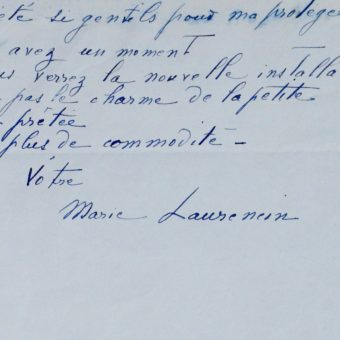 été si gentils pour ma protégée
avez un moment
us verrez la nouvelle installa
pas le charme de la petite
prêtée
plus de commodité —
Vôtre
Marie Laurencin